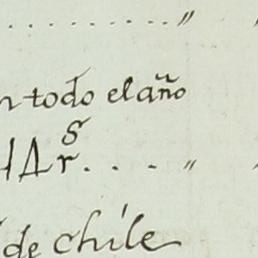 . . . . . . . . . . . . . . "
n todo el año
r. . . . "
de chile